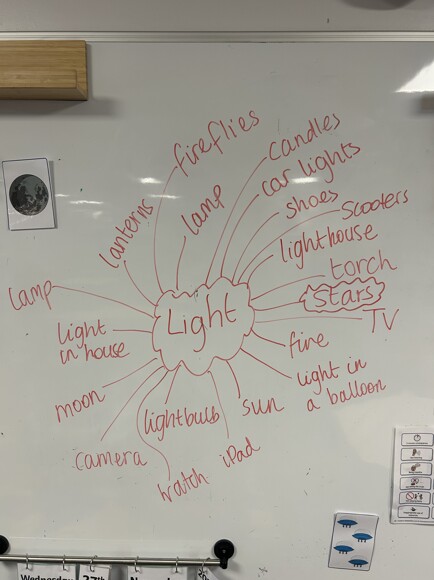 fireflies
candles
car lights
lamp
shoes
scooters
lanterns
lighthouse
torch
lamp
stars
Light
TV
light
in house
fire
light in
a balloon
moon
lightbulb
sun
camera
iPad
watch
Wednesday
27th